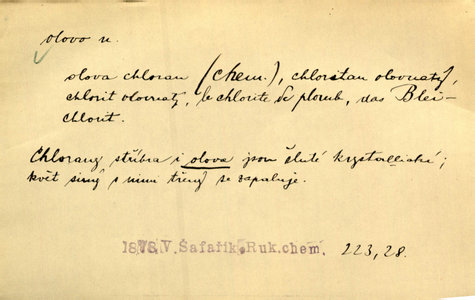 olovo n.
olova chloran (chem.), chloritan olovnatý,
chlorit olovnatý, le chlorite de plomb, das Blei-
chlorit.
Chlorany stříbra i olova jsou žluté krystallické;
květ sirný s nimi třený se zapaluje.
V. Šafařík, Ruk. chem. 223, 28.